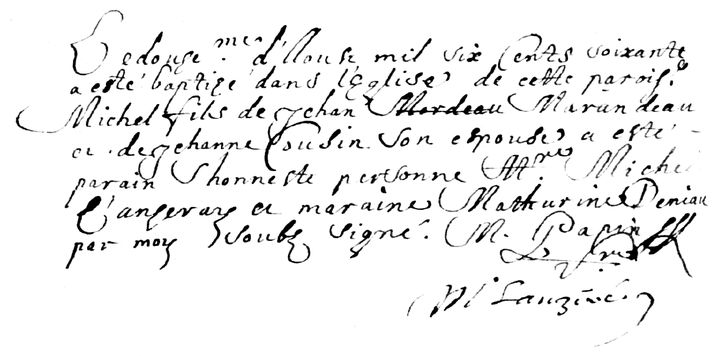 Le dousè.me d'Aoust mil six Cents soixante
a esté baptizé dans lEglise de cette parois.
Michel fils de Jehan Mordeau Marundeau
et de Jehanne Cousin son espouse a esté
parain honneste personne Me Michel
et maraine Mathurine Deniau
par moy soubz signé. M. Papin